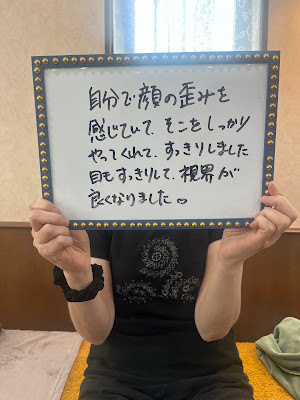 自分で顔の歪みを
感じていて、そこをしっかり
やってくれて、すっきりしました
目もすっきりして、視界が
良くなりました。